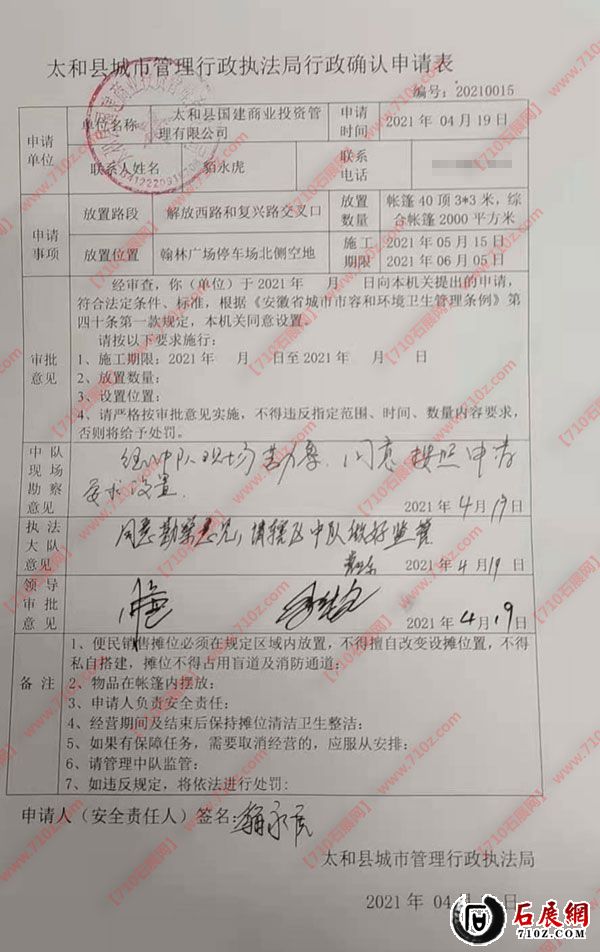 太和县城市管理行政执法局行政确认申请表
编号:20210015
申请单位
单位名称
太和县国建商业投资管理有限公司
申请时间
2021 年 04 月 19 日
联系人姓名
貊永虎
联系电话
申请事项
放置路段
解放西路和复兴路交叉口
放置数量
帐篷 40 顶 3*3 米,综合帐篷 2000 平方米
放置位置
翰林广场停车场北侧空地
施工期限
2021 年 05 月 15 日
2021 年 06 月 05 日
审批意见
经审查,你(单位)于 2021 年 月 日向本机关提出的申请,
符合法定条件、标准,根据《安徽省城市市容和环境卫生管理条例》第
四十条第一款规定,本机关同意设置。
请按以下要求施行:
1、施工期限:2021 年 月 日至 2021 年 月 日
2、放置数量:
3、设置位置:
4、请严格按审批意见实施,不得违反指定范围、时间、数量内容要求,
否则将给予处罚。
中队现场勘察意见
经中队现场勘察,同意按照申请
要求设置
2021 年 4 月 19 日
执法大队意见
同意勘察意见,请辖区中队做好监管
2021 年 4 月 19 日
领导审批意见
2021 年 4 月 19 日
备注
1、便民销售摊位必须在规定区域内放置,不得擅自改变设摊位置,不得
私自搭建,摊位不得占用盲道及消防通道;
2、物品在帐篷内摆放:
3、申请人负责安全责任:
4、经营期间及结束后保持摊位清洁卫生整洁:
5、如果有保障任务,需要取消经营的,应服从安排:
6、请管理中队监管:
7、如违反规定,将依法进行处罚:
申请人(安全责任人)签名:貊永虎
太和县城市管理行政执法局
2021 年 04 日
【710石展网】
www.710z.com
石展網
710Z.COM